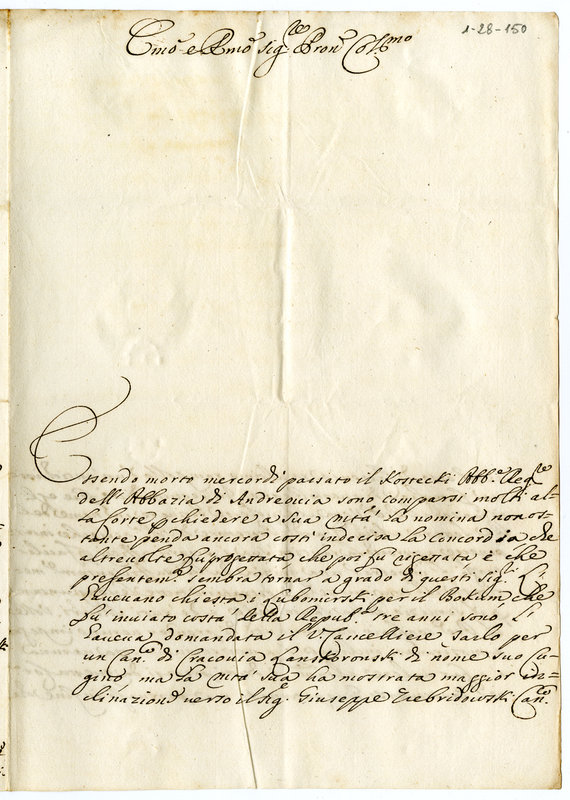 1-28-150
Emo e Rmo Sigre Pron Colmo
Essendo morto mercordì passato il Kostecki Abbe Regle
dell' Abbazia di Andreovia sono comparsi molti al-
la Corte p chiedere a Sua Mtà la nomina nonos-
tante penda ancora costì indecisa la Concordia che
altrevolte fu progettata che poi fù rigettata è che
presentemte sembra tornar a grado di questi Sigri. L'
havevano chiesta i Lubomirski per il Bokum che
fù inviato costà della Repubca tre anni sono, L'
haveva domandata il VCancelliere sarlo per
un Canco di Cracovia Lanskoronski di nome suo Cu-
gino ma la Mtà Sua ha mostrata maggior in=
clinazione verso il Sigr Giuseppe Zebridowski Canco